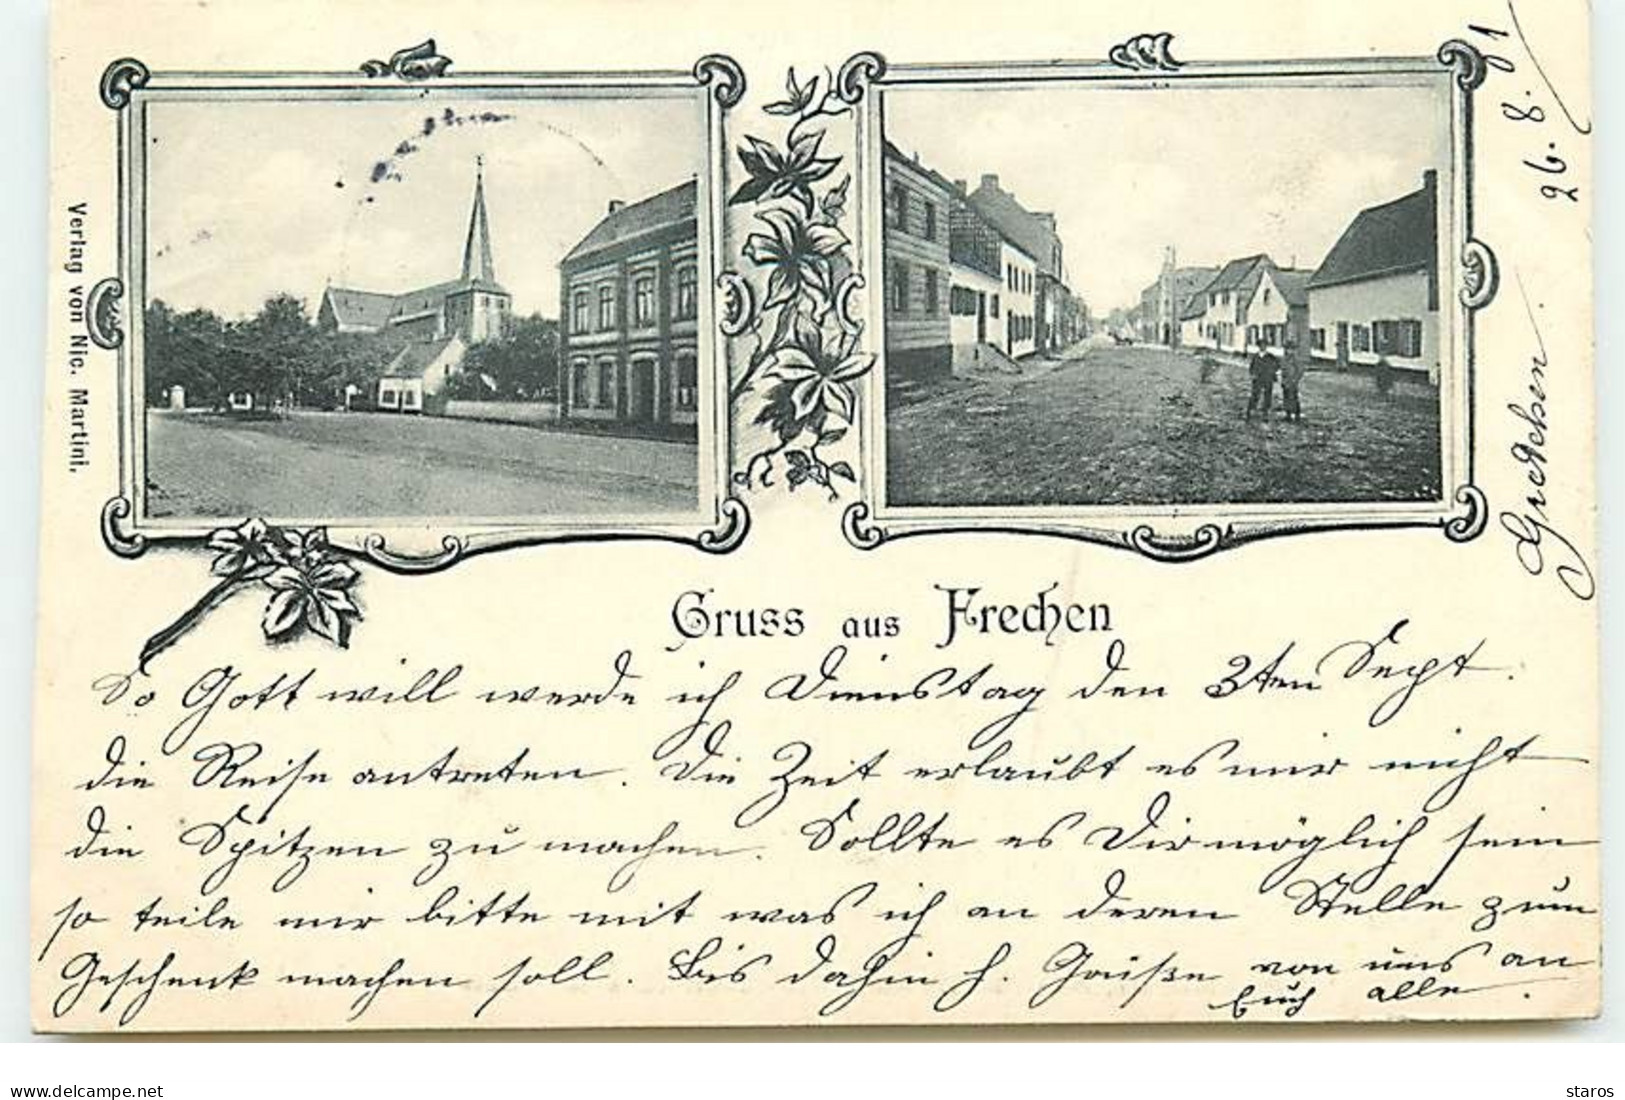 26. 8. 01
Gretchen.
Verlag von Nic. Martini.
Gruss aus Frechen
So Gott will werde ich Dienstag den 3ten Sept.
die Reise antreten. Die Zeit erlaubt es mir nicht
die Spitzen zu machen. Sollte es Dir möglich sein
so teile mir bitte mit was ich an deren Stelle zum
Geschenk machen soll. Bis dahin h. Grüße von uns an
Euch alle.
www.delcampe.net
staros